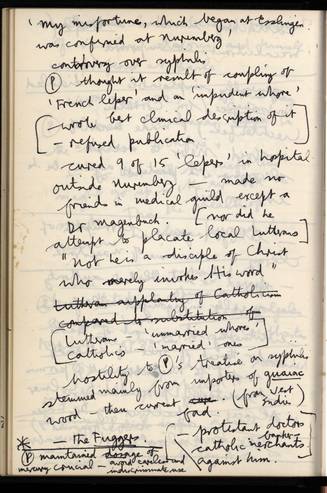 'my misfortune, which began at Esslingen
was confirmed at Nuremberg'
controversy over syphilis
Ⓟ thought it result of coupling of
'French leper' and an 'impudent whore'
[- wrote best clinical description of it
- refused publication]
cured 9 of 15 'lepers' in hospital
outside Nuremberg — made no
friends in medical guild except a
Dr Magenbuch. [nor did he
attempt to placate local Lutherans]
"Not he is a disciple of Christ
who merely invokes His word"
Lutheran supplanting of Catholicism
compared to substitution of
[Lutherans - 'unmarried whores'
Catholics 'married' ones]
hostility to Ⓟ's treatise on syphilis
stemmed mainly from importers of guaiac
wood - then current fad. (from West
Indies)
* — the Fuggers
Ⓟ maintained dosage of
mercury crucial - avoid careless and
indiscriminate use
[- protestant doctors
catholic bankers merchants
against him.]